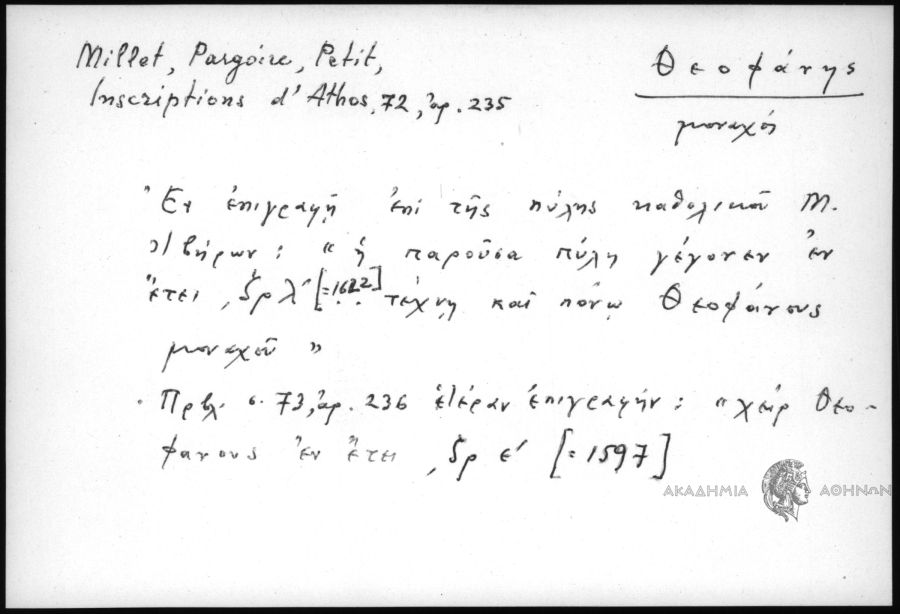 Millet, Pargoire, Petit,
Inscriptions d'Athos, 72, ἀρ. 235
Θεοφάνης
μοναχός
Ἐν ἐπιγραφῇ ἐπὶ τῆς πύλης καθολικοῦ Μ.
Ἰβήρων : « ἡ παροῦσα πύλη γέγονεν ἐν
ἔτει ͵ζρλ´ [=1622] τέχνῃ καὶ πόνῳ Θεοφάνους
μοναχοῦ »
Πρβλ. σ. 73, ἀρ. 236 ἑτέραν ἐπιγραφήν : « χεὶρ Θεο-
φανους ἐν ἔτει ͵ζρε´ [=1597]
ΑΚΑΔΗΜΙΑ ΑΘΗΝΩΝ